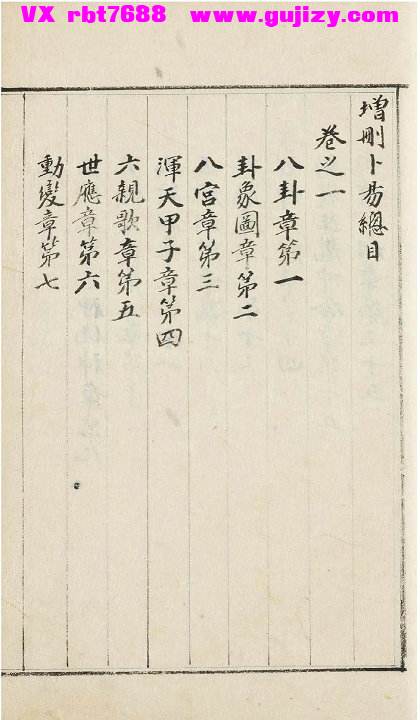 VX rbt7688 www.gujizy.com
增刪卜易總目
卷之一
八卦章第一
卦象圖章第二
八宮章第三
渾天甲子章第四
六親歌章第五
世應章第六
動變章第七